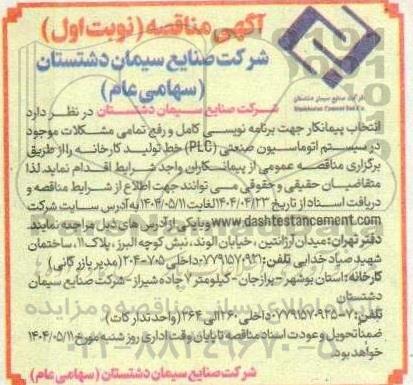 آگهی مناقصه (نوبت اول)
شرکت صنایع سیمان دشتستان
(سهامی عام)
شرکت صنایع سیمان دشتستان
شرکت صنایع سیمان دشتستان در نظر دارد
انتخاب پیمانکار جهت برنامه نویسی کامل و رفع تمامی مشکلات موجود
در سیستم اتوماسیون صنعتی (PLC) خط تولید کارخانه را از طریق
برگزاری مناقصه عمومی از پیمانکاران واجد شرایط اقدام نماید لذا
متقاضیان حقیقی و حقوقی می توانند جهت اطلاع از شرایط مناقصه و
دریافت اسناد از تاریخ ۱۴۰۴/۰۴/۲۳ لغایت ۱۴۰۴/۰۵/۱۱ به آدرس سایت شرکت
www.dashtestancement.com و یا یکی از آدرس های ذیل مراجعه نمایند.
دفتر تهران: میدان آرژانتین، خیابان الوند، نبش کوچه البرز، پلاک ۱۱، ساختمان
شهید صیاد خدایی تلفن: ۰۷۷۹۱۵۷۰۹۲۱ داخلی ۲۰۵-۲۰۴ (مدیر بازرگانی)
کارخانه: استان بوشهر - برازجان - کیلومتر ۷ جاده شیراز - شرکت صنایع سیمان
دشتستان
تلفن: ۷-۰۷۷۹۱۵۷۰۹۲۵ داخلی ۲۶۰ الی ۲۶۴ (واحد تدارکات)
ضمنا تحویل و عودت اسناد مناقصه تا پایان وقت اداری روز شنبه مورخ ۱۴۰۴/۰۵/۱۱
خواهد بود.
شرکت صنایع سیمان دشتستان (سهامی عام)